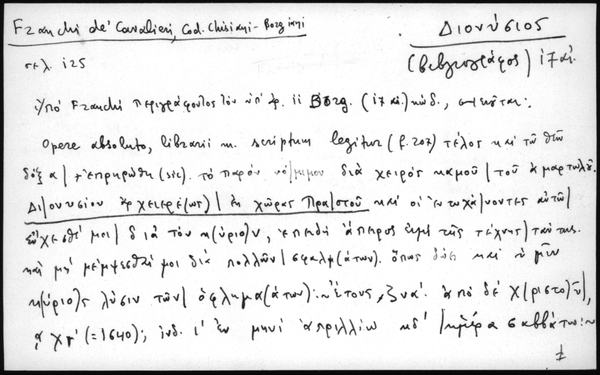 Franchi de' Cavalieri, Cod. Chisiani-Borgiani
Διονύσιος
σελ. 125
(βιβλιογράφος) 17 αἰ.
Ὑπὸ Franchi περιγράφοντος τὸν ὑπ' ἀρ. 11 Borg. (17 αἰ.) κώδ., σημειοῦται:
Opere absoluto, librarii m. scriptum legitur (f. 207) τέλος καὶ τῶ θεῶ
δόξα | + ἐπληρώθη (sic). τὸ παρὸν νό|μιμον διὰ χειρὸς κἀμοῦ | τοῦ ἁμαρτωλοῦ.
Δι|ονυσίου ἀρχιερέ(ως) | ἐκ χώρας Πρα|στοῦ καὶ οἱ ἐντυχά|νοντες αὐτῶ |
εὔχεσθέ μοι | διὰ τὸν κ(ύριο)ν, ἐπειδὴ ἄπειρος εἰμὶ τῆς τέχνης | ταύτης.
καὶ μὴ μέμψεσθέ μοι διὰ πολλῶν | σφαλμ(άτων). ὅπως δώει καὶ ὑμῖν
κ(ύριο)ς λύσιν τῶν | ὀφλημα(άτων):~ ἔτους ,ζνα΄. ἀπὸ δὲ Χ(ριστο)ῦ,
,αχμ΄ (=1640); ἰνδ. ι΄ ἐν μηνὶ ἀπριλλίω κδ΄ | ἡμέρα σαββάτω:~